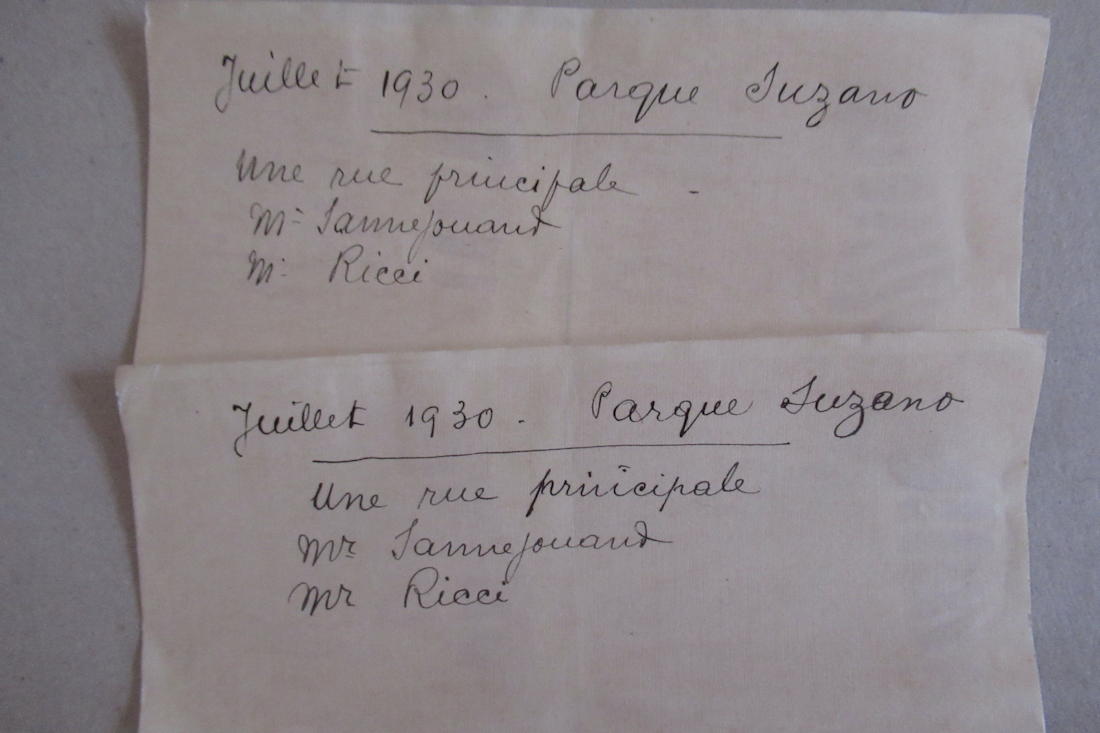 Juillet 1930. Parque Suzano
Une rue principale -
Mr Sannejouand
Mr Ricci
Juillet 1930. Parque Suzano
Une rue principale
Mr Sannejouand
Mr Ricci